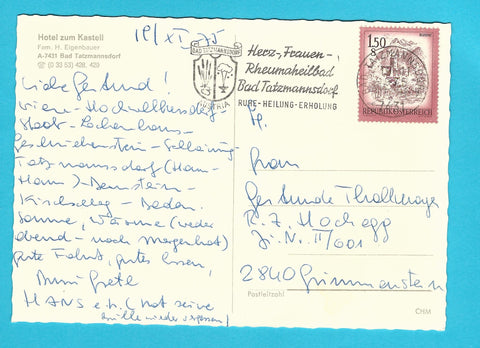 Hotel zum Kastell
Fam. H. Eigenbauer
A-7431 Bad Tatzmannsdorf
☎ (0 33 53) 428, 429
19/XI 75
Liebe Gertrud!
Wiener-
Stadt-Lockenhaus-
Geschriebenstein-Schlaining-
Tatzmannsdorf (Ham-
Ham)-Bernstein-
Kirschschlag-Baden.
Sonne, Wärme (weder
abend-noch morgenrot)
gute Fahrt, gutes Essen,
Mimi Gretl
HANS e.h. (hat seine
Brille wieder vergessen)
BAD TATZMANNSDORF
AUSTRIA
Herz-, Frauen-,
Rheumaheilbad
Bad Tatzmannsdorf
RUHE-HEILUNG-ERHOLUNG
1.50
S
REPUBLIK ÖSTERREICH
7431
Frau
Gertrude Thallmayer
R.Z. Hochegg
Zi. Nr. II/601
2840 Grimmenstein
Postleitzahl
CHM